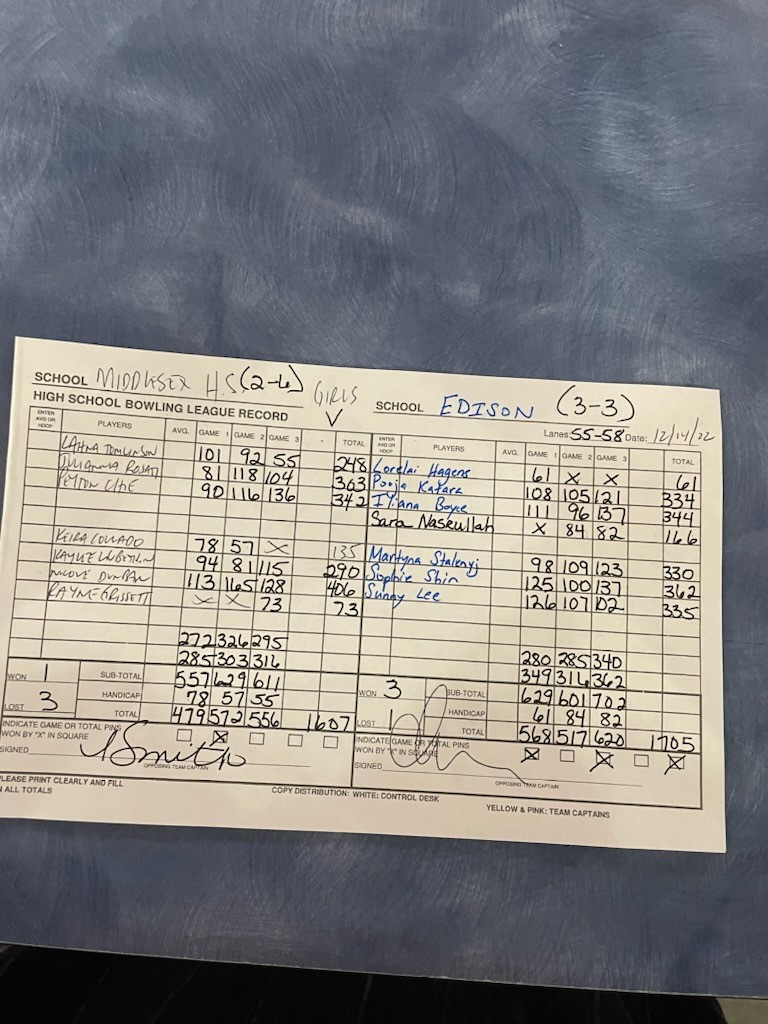 SCHOOL MIDDLESEX H.S. (2-6) GIRLS
HIGH SCHOOL BOWLING LEAGUE RECORD
ENTER AVG OR HDCP PLAYERS AVG. GAME 1 GAME 2 GAME 3 TOTAL
101 92 55 248
81 118 104 363
PEYTON 90 116 136 342
KEIRA COLLADO 78 57 X 135
94 81 115 290
NICOLE 113 165 128 406
X X 73 73
272 326 295
285 303 316
SUB-TOTAL 557 629 611
HANDICAP 78 57 55
TOTAL 479 572 556 1607
WON 1
LOST 3
INDICATE GAME OR TOTAL PINS WON BY "X" IN SQUARE X
SIGNED Smith
OPPOSING TEAM CAPTAIN
PLEASE PRINT CLEARLY AND FILL
ALL TOTALS
COPY DISTRIBUTION: WHITE: CONTROL DESK
SCHOOL EDISON (3-3)
Lanes: 55-58 Date: 12/14/22
ENTER AVG OR HDCP PLAYERS AVG. GAME 1 GAME 2 GAME 3 TOTAL
Lorelai Hagens 61 X X 61
Pooja Katara 108 105 121 334
Iliana Boyce 111 96 137 344
Sara Naseullah X 84 82 166
Martyna Stalenyj 98 109 123 330
Sophie Shin 125 100 137 362
Sunny Lee 126 107 102 335
280 285 340
349 316 362
SUB-TOTAL 629 601 702
HANDICAP 61 84 82
TOTAL 568 517 620 1705
WON 3
LOST 1
INDICATE GAME OR TOTAL PINS WON BY "X" IN SQUARE X X X
SIGNED
OPPOSING TEAM CAPTAIN
YELLOW & PINK: TEAM CAPTAINS